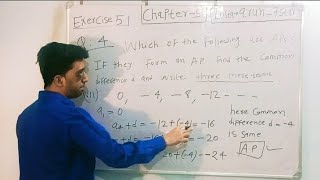 Exercise 5.1 Chapter-5
Q. 4 Which of the following are APs?
If they form an AP. find the Common
difference d and write three more terms
0, -4, -8, -12 - - -
a₁ = 0
a₄ + d = -12 + (-4) = -16
here Common
difference d = -4
is same
-20
20 + (-4) = -24
AP